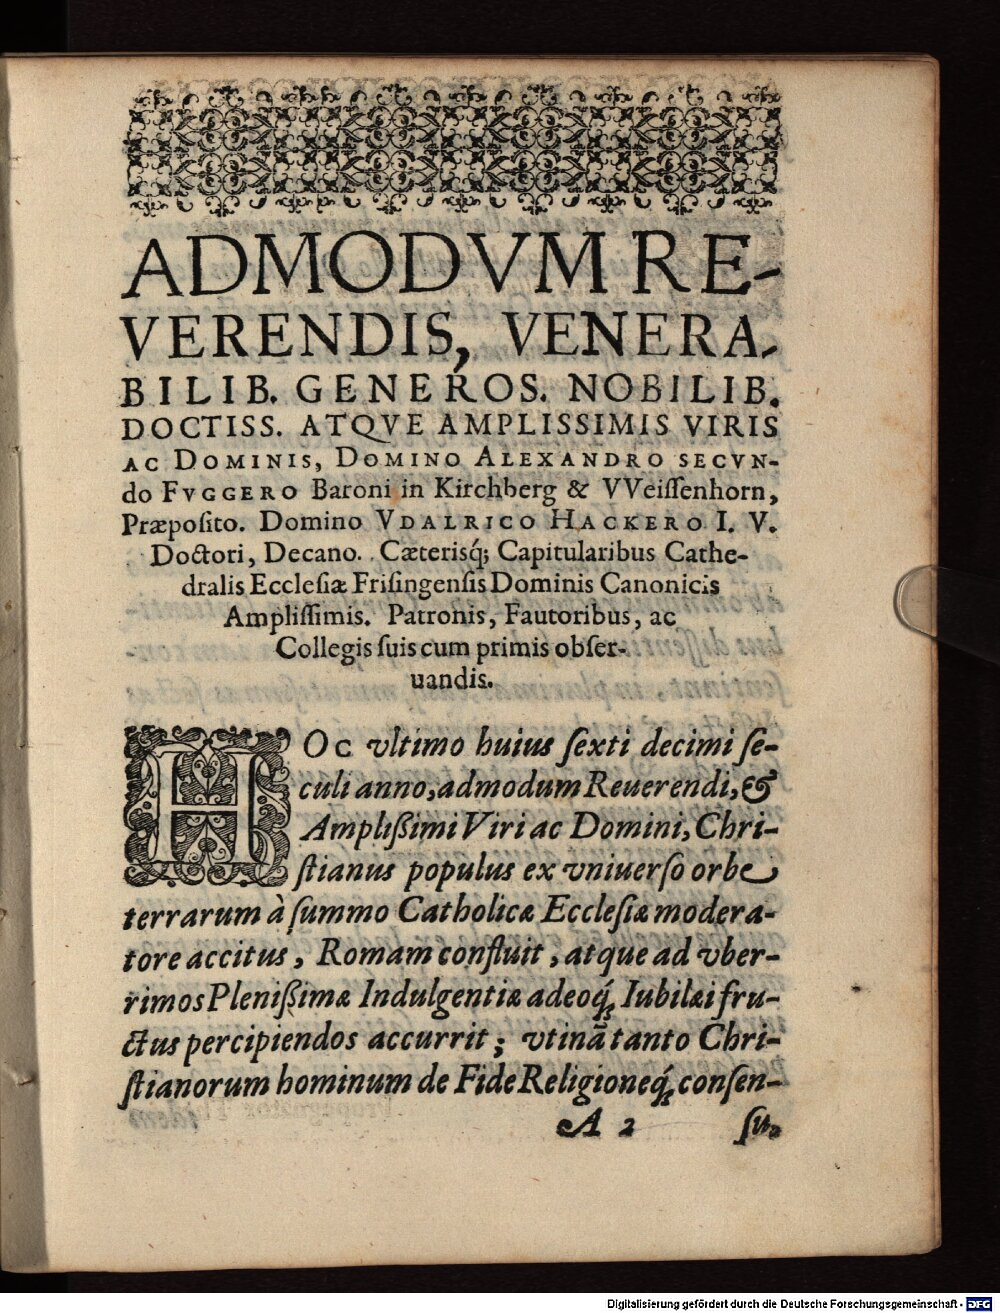 ADMODVM RE-
VERENDIS, VENERA-
BILIB. GENEROS. NOBILIB.
DOCTISS. ATQVE AMPLISSIMIS VIRIS
AC DOMINIS, DOMINO ALEXANDRO SECVN-
do FVGGERO Baroni in Kirchberg & VVeiſſenhorn,
Præpoſito. Domino VDALRICO HACKERO I. V.
Doctori, Decano. Cæteriſq́; Capitularibus Cathe-
dralis Eccleſiæ Friſingenſis Dominis Canonicis
Ampliſſimis. Patronis, Fautoribus, ac
Collegis ſuis cum primis obſer-
uandis.
HOC vltimo huius ſexti decimi ſe-
culi anno, admodum Reuerendi, &
Amplißimi Viri ac Domini, Chri-
ſtianus populus ex vniuerſo orbe
terrarum à ſummo Catholicæ Eccleſiæ modera-
tore accitus, Romam confluit, atque ad vber-
rimos Plenißimæ Indulgentiæ adeoq́; Iubilæi fru-
ctus percipiendos accurrit; vtinã tanto Chri-
ſtianorum hominum de Fide Religioneq́; conſen-
A 2 ſu,
Digitalisierung gefördert durch die Deutsche Forschungsgemeinschaft - DFG